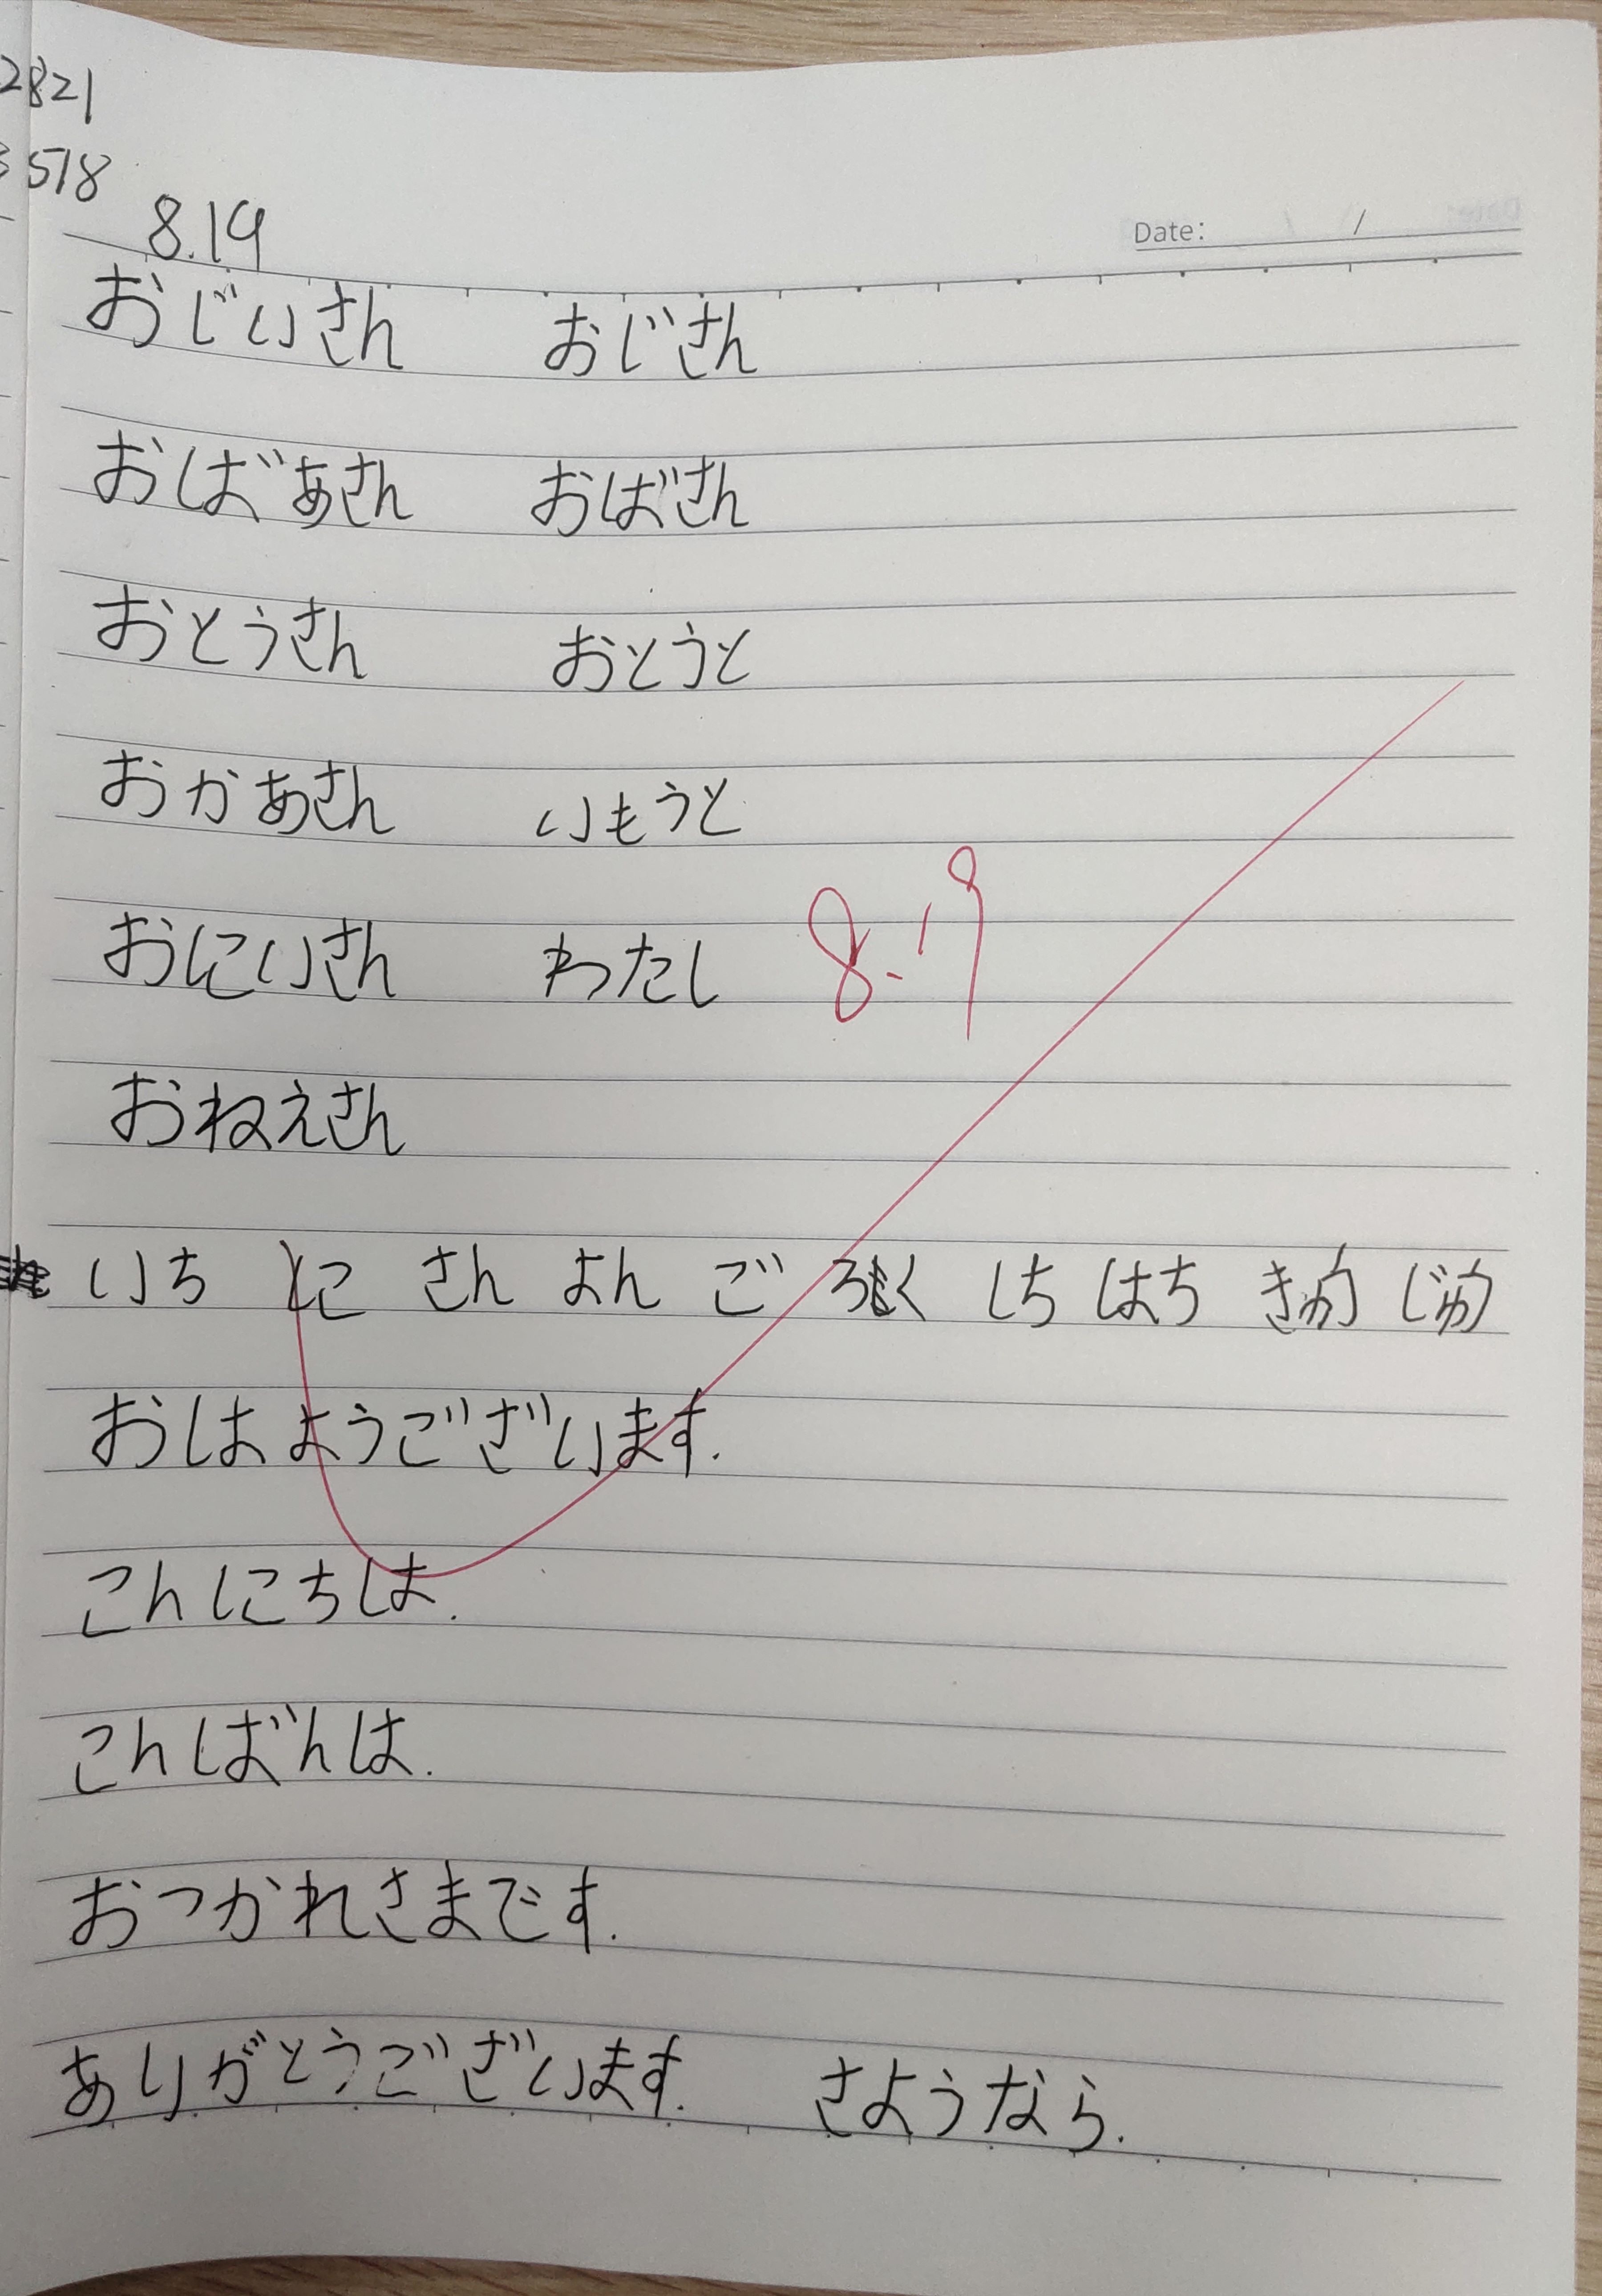 2821
518
8.19
Date: / /
おじいさん おじさん
おばあさん おばさん
おとうさん おとうと
おかあさん いもうと
おにいさん わたし 8.19
おねえさん
いち に さん よん ご ろく しち はち きゅう じゅう
おはようございます.
こんにちは.
こんばんは.
おつかれさまです.
ありがとうございます. さようなら.